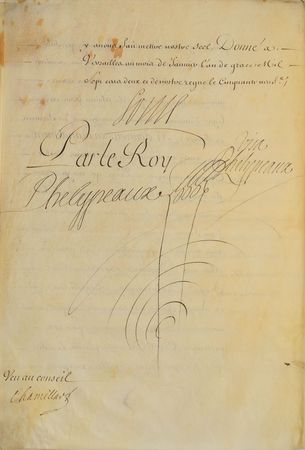 y avons fait mettre nostre Scel, Donné a
Versailles au mois de Janvier l'an de grace Mil
Sept cens deux et de nostre regne le Cinquante neuf.
Louis
Par le Roy
Visa
Phelypeaux
Phelypeaux
Veu au conseil
Chamillart